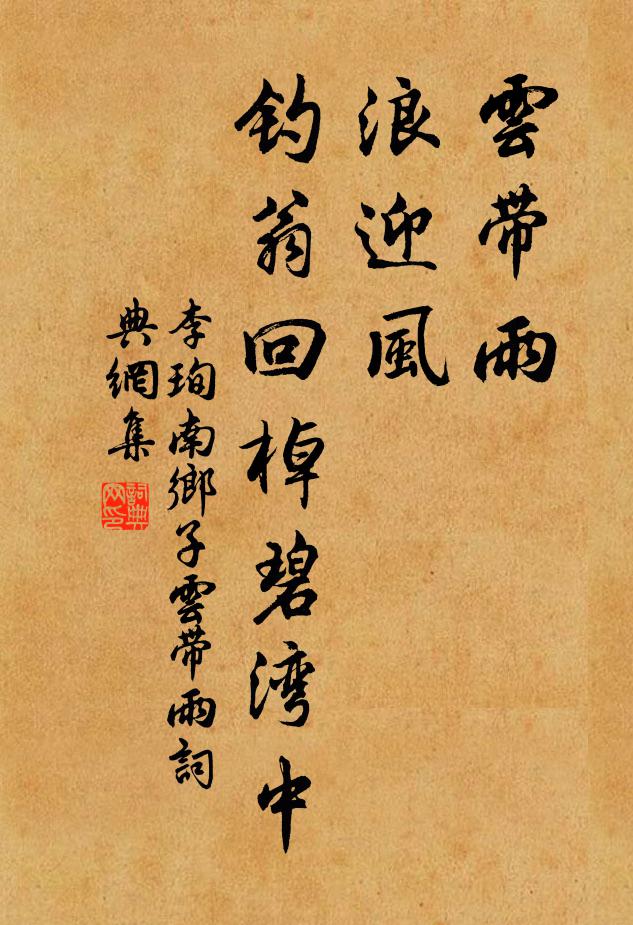 雲帶雨
浪迎風
钓翁回棹碧湾中
李珣南鄉子雲帶雨詞
典網集
詞典
网印